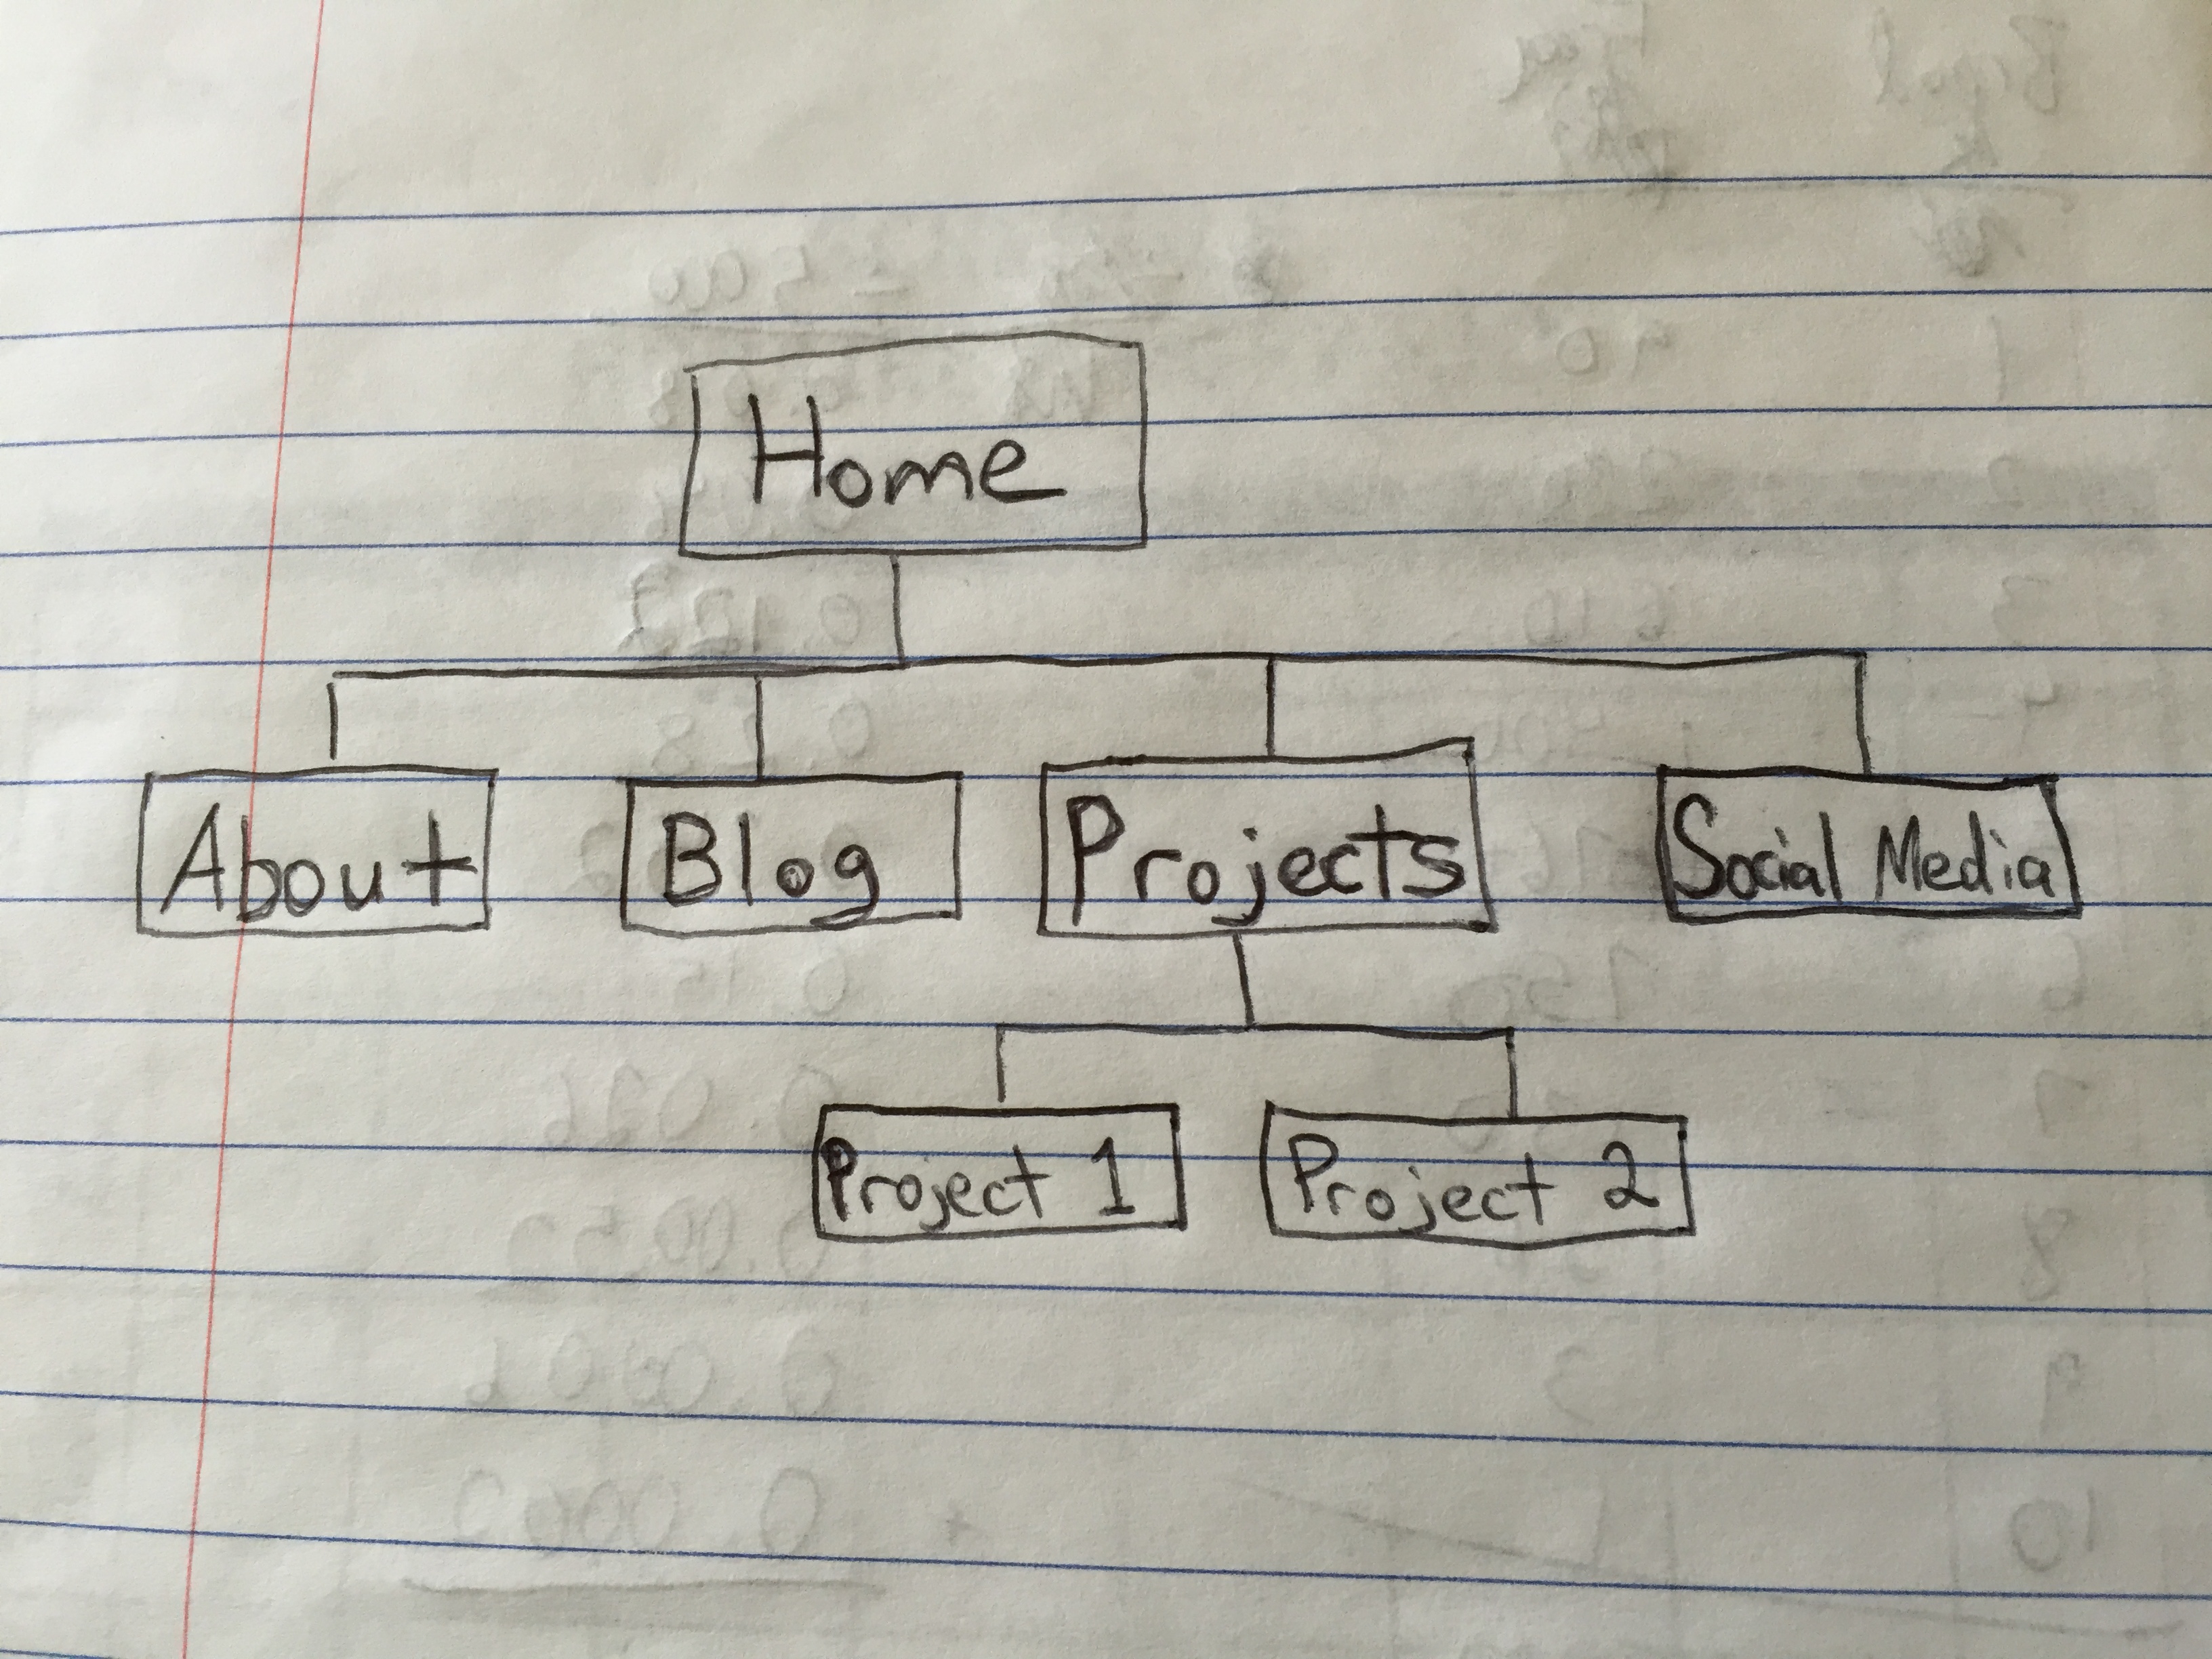 Home
About Blog Projects Social Media
Project 1 Project 2